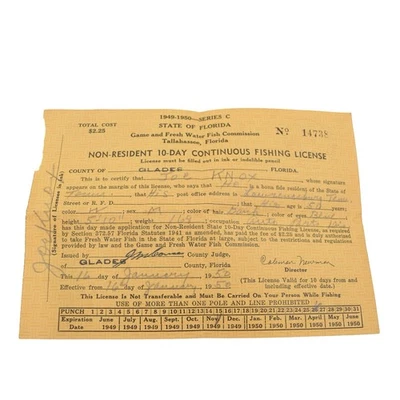 1949-1950—SERIES C
TOTAL COST
$2.25
STATE OF FLORIDA
Game and Fresh Water Fish Commission
Tallahassee, Florida
Nº 14738
NON-RESIDENT 10-DAY CONTINUOUS FISHING LICENSE
License must be filled out in ink or indelible pencil
COUNTY OF GLADES FLORIDA.
This is to certify that Joe Knox whose signature
appears on the margin of this license, who says that he is a bona fide resident of the State of
Tenn. post office address is Tenn
Street or R.F.D. and that age is
color W sex M color of hair color of eyes
height weight
has this day made application for Non-Resident State 10-Day Continuous Fishing License, as required
by Section 372.57 Florida Statutes 1941 as amended, has paid the fee of $2.25 and is duly authorized
to take Fresh Water Fish in the State of Florida at large, subject to the restrictions and regulations
provided by law and the Game and Fresh Water Fish Commission.
Issued by County Judge.
GLADES County, Florida
This 16 day of January 1950
Effective from 16 of January 1950
Coleman Newman
Director
(This License Valid for 10 days from and
including effective date.)
This License Is Not Transferable and Must Be Carried On Your Person While Fishing
USE OF MORE THAN ONE POLE AND LINE PROHIBITED
PUNCH 1 2 3 4 5 6 7 8 9 10 11 12 13 14 15 16 17 18 19 20 21 22 23 24 25 26 27 28 29 30 31
Expiration June July Aug. Sept. Oct. Nov. Dec. Jan. Feb. Mar. April May June
Date 1949 1949 1949 1949 1949 1949 1949 1950 1950 1950 1950 1950 1950
Joe Knox
(Signature of Licensee in Ink)